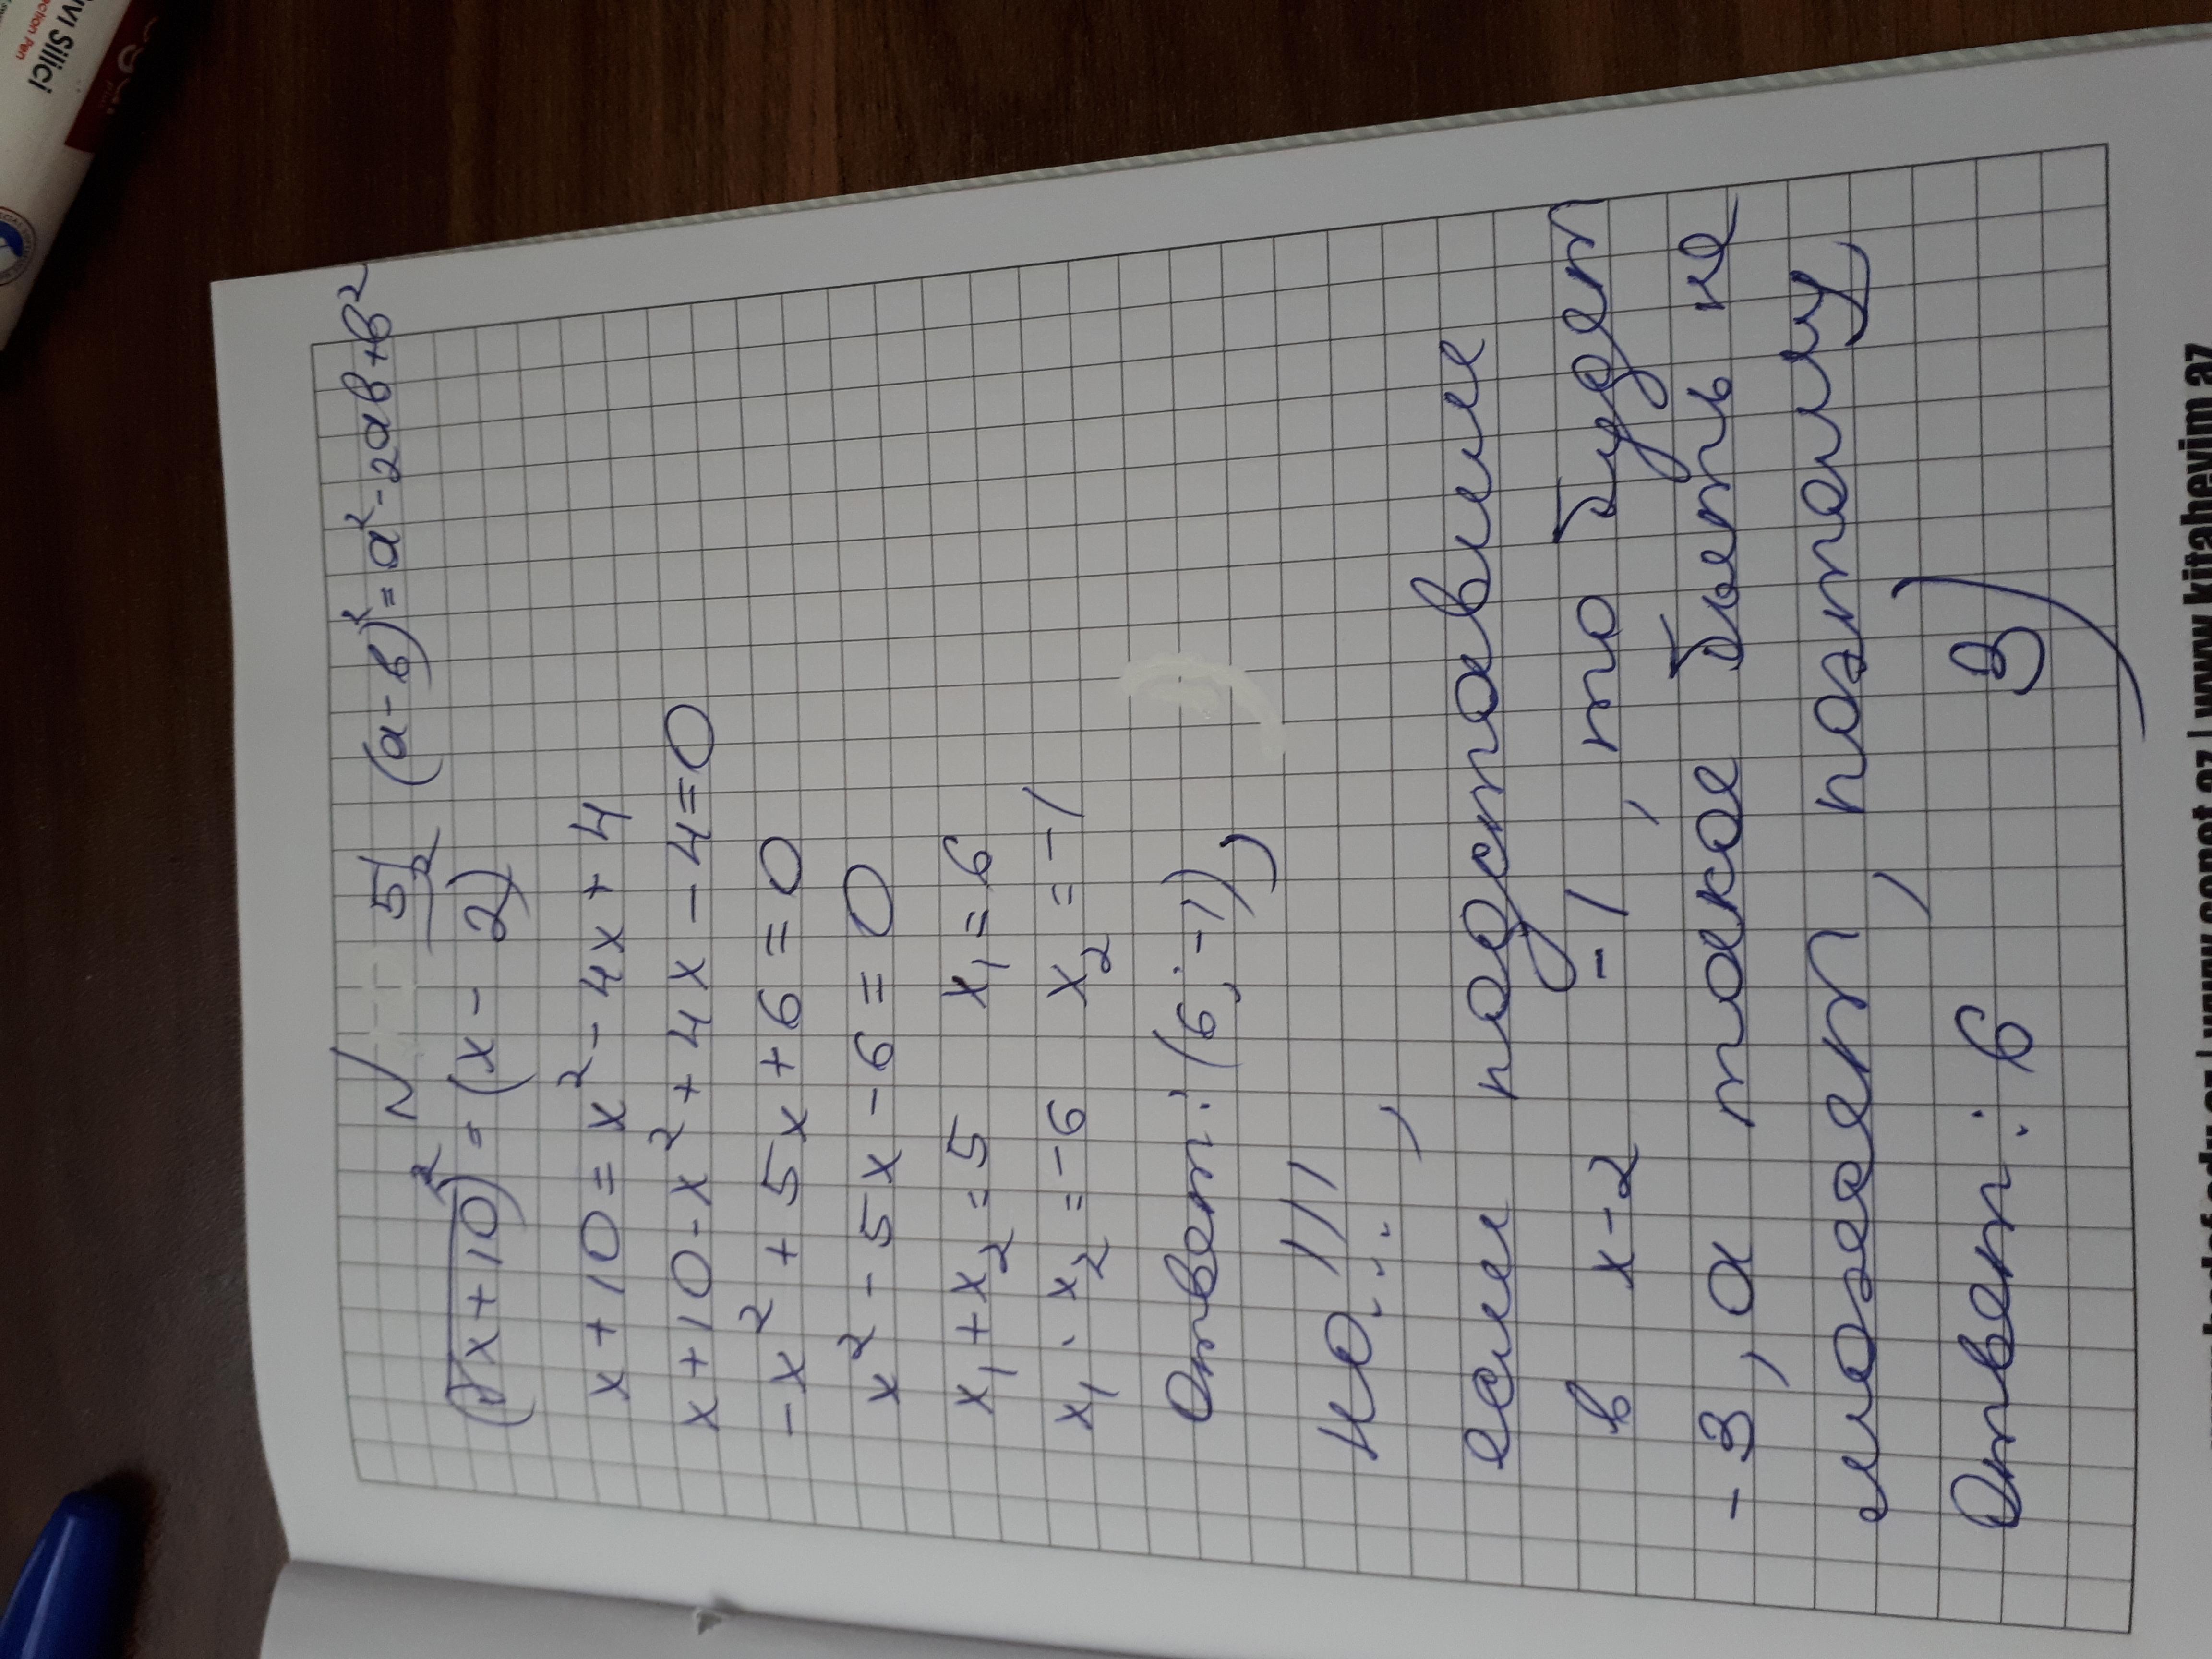 N 5
(a-b)²=a²-2ab+b²
(√x+10)²=(x-2)²
x+10=x²-4x+4
x+10-x²+4x-4=0
-x²+5x+6=0
x²-5x-6=0
x₁+x₂=5 x₁=6
x₁·x₂=-6 x₂=-1
Ответ: (6; -1),
но...!!!
если подставим
в x-2 -1, то будет
-3, а такое быть не
может, поэтому
Ответ: 6 3)
ivi Silici
ection Pen
www.kitabevim.az